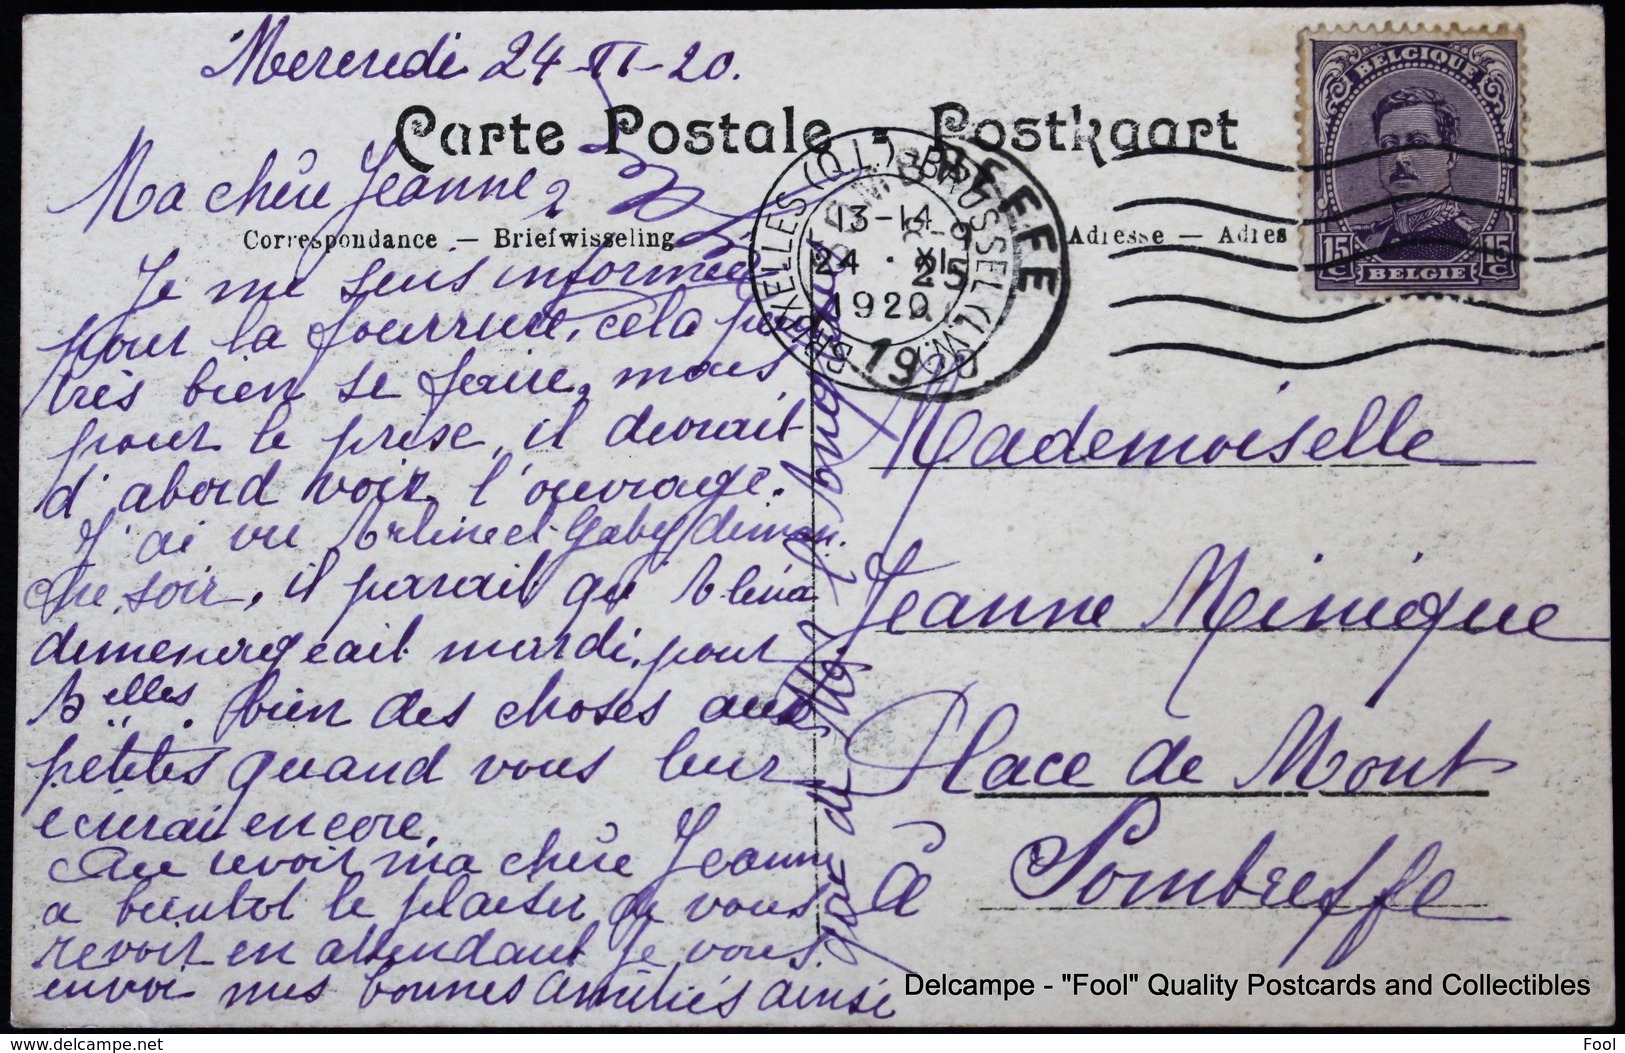 Mercredi 24-XI-20.
Carte Postale - Postkaart
Ma chère Jeanne,
Correspondance — Briefwisseling
Adresse — Adres
Je me suis informée
pour la fourrure, cela peut
très bien se faire, mais
pour le prix, il devrait
d'abord voir l'ouvrage.
J'ai vu et Gaby diman-
che soir, il parait que
demenageait mardi, pour
Belles. bien des choses aux
petites quand vous leur
écrirai encore.
Au revoir ma chère Jeanne
a bientot le plaisir de vous
revoir en attendant je vous
envoi mes bonnes amitiés ainsi
que de
BELGIQUE
15 C
15 C
BELGIE
BRUXELLES (Q.L.) BRUSSEL (L.W.)
13-14
24 · XI
1920
8-9
25
19
Mademoiselle
Jeanne Minique
Place de Mont
à Sombreffe
Delcampe - "Fool" Quality Postcards and Collectibles
www.delcampe.net
Fool